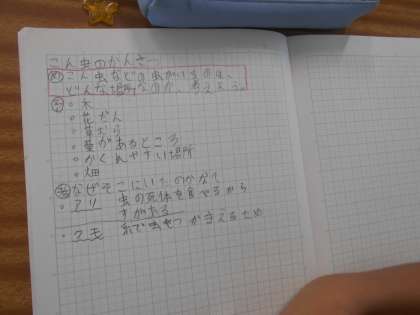 こん虫のかんさつ
め こん虫などの虫がいるのは、
どんな場所なのか、考えよう。
予 ・木
・花だん
・草むら
・葉があるところ
・かくれやすい場所
・畑
考 なぜそこにいたのかな?
・アリ 虫の死体を食べるから
すがある
・クモ 糸で虫をつかまえるため